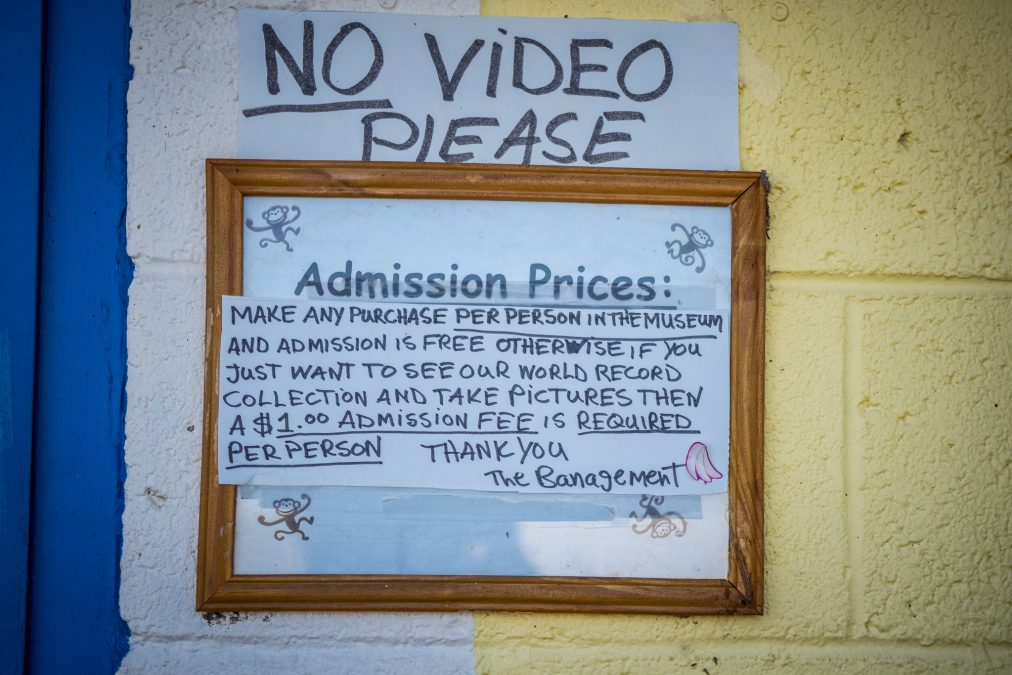 NO VIDEO
PLEASE
Admission Prices:
MAKE ANY PURCHASE PER PERSON IN THE MUSEUM
AND ADMISSION IS FREE OTHERWISE IF YOU
JUST WANT TO SEE OUR WORLD RECORD
COLLECTION AND TAKE PICTURES THEN
A $1.00 ADMISSION FEE IS REQUIRED
PER PERSON THANK YOU
The Banagement